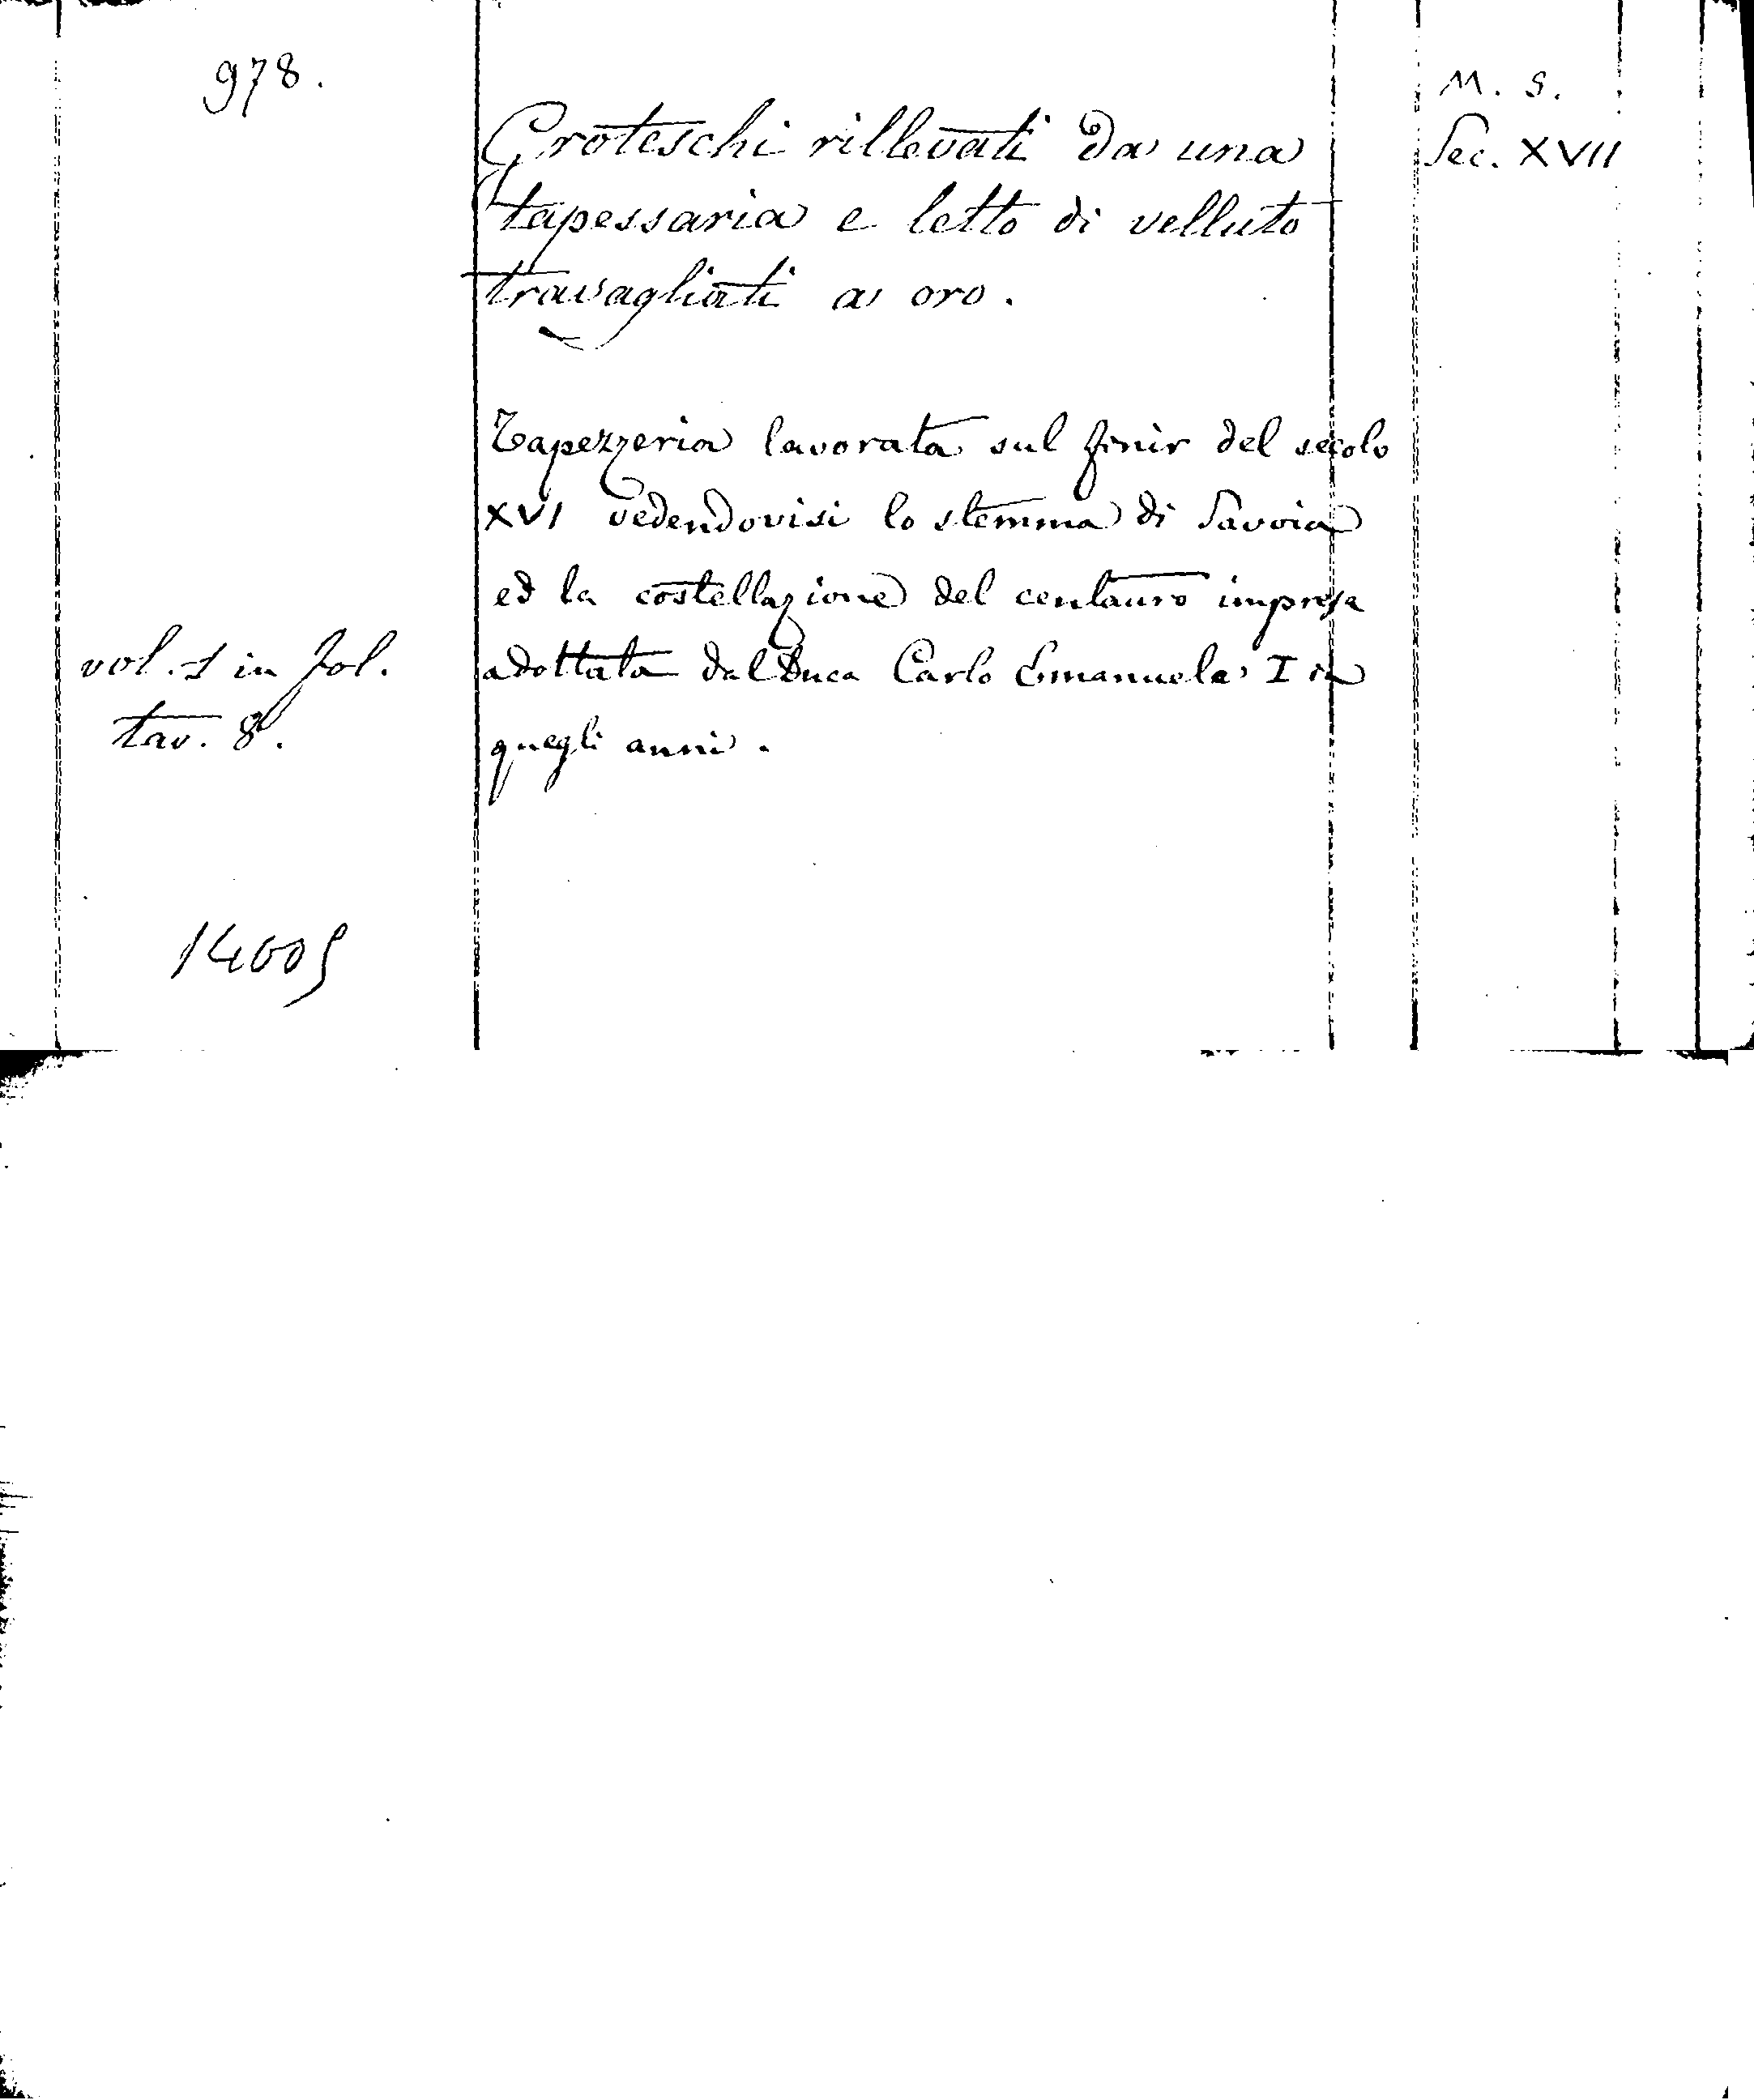 978.
M. S.
Sec. XVII
Groteschi rillevati da una
tapessaria e letto di velluto
travagliati a oro.
Tapezzeria lavorata sul finir del secolo
XVI vedendovisi lo stemma di Savoia
ed la costellazione del centauro impresa
adottata dal Duca Carlo Emanuele I in
quegli anni.
vol. 1 in fol.
tav. 8.
14005